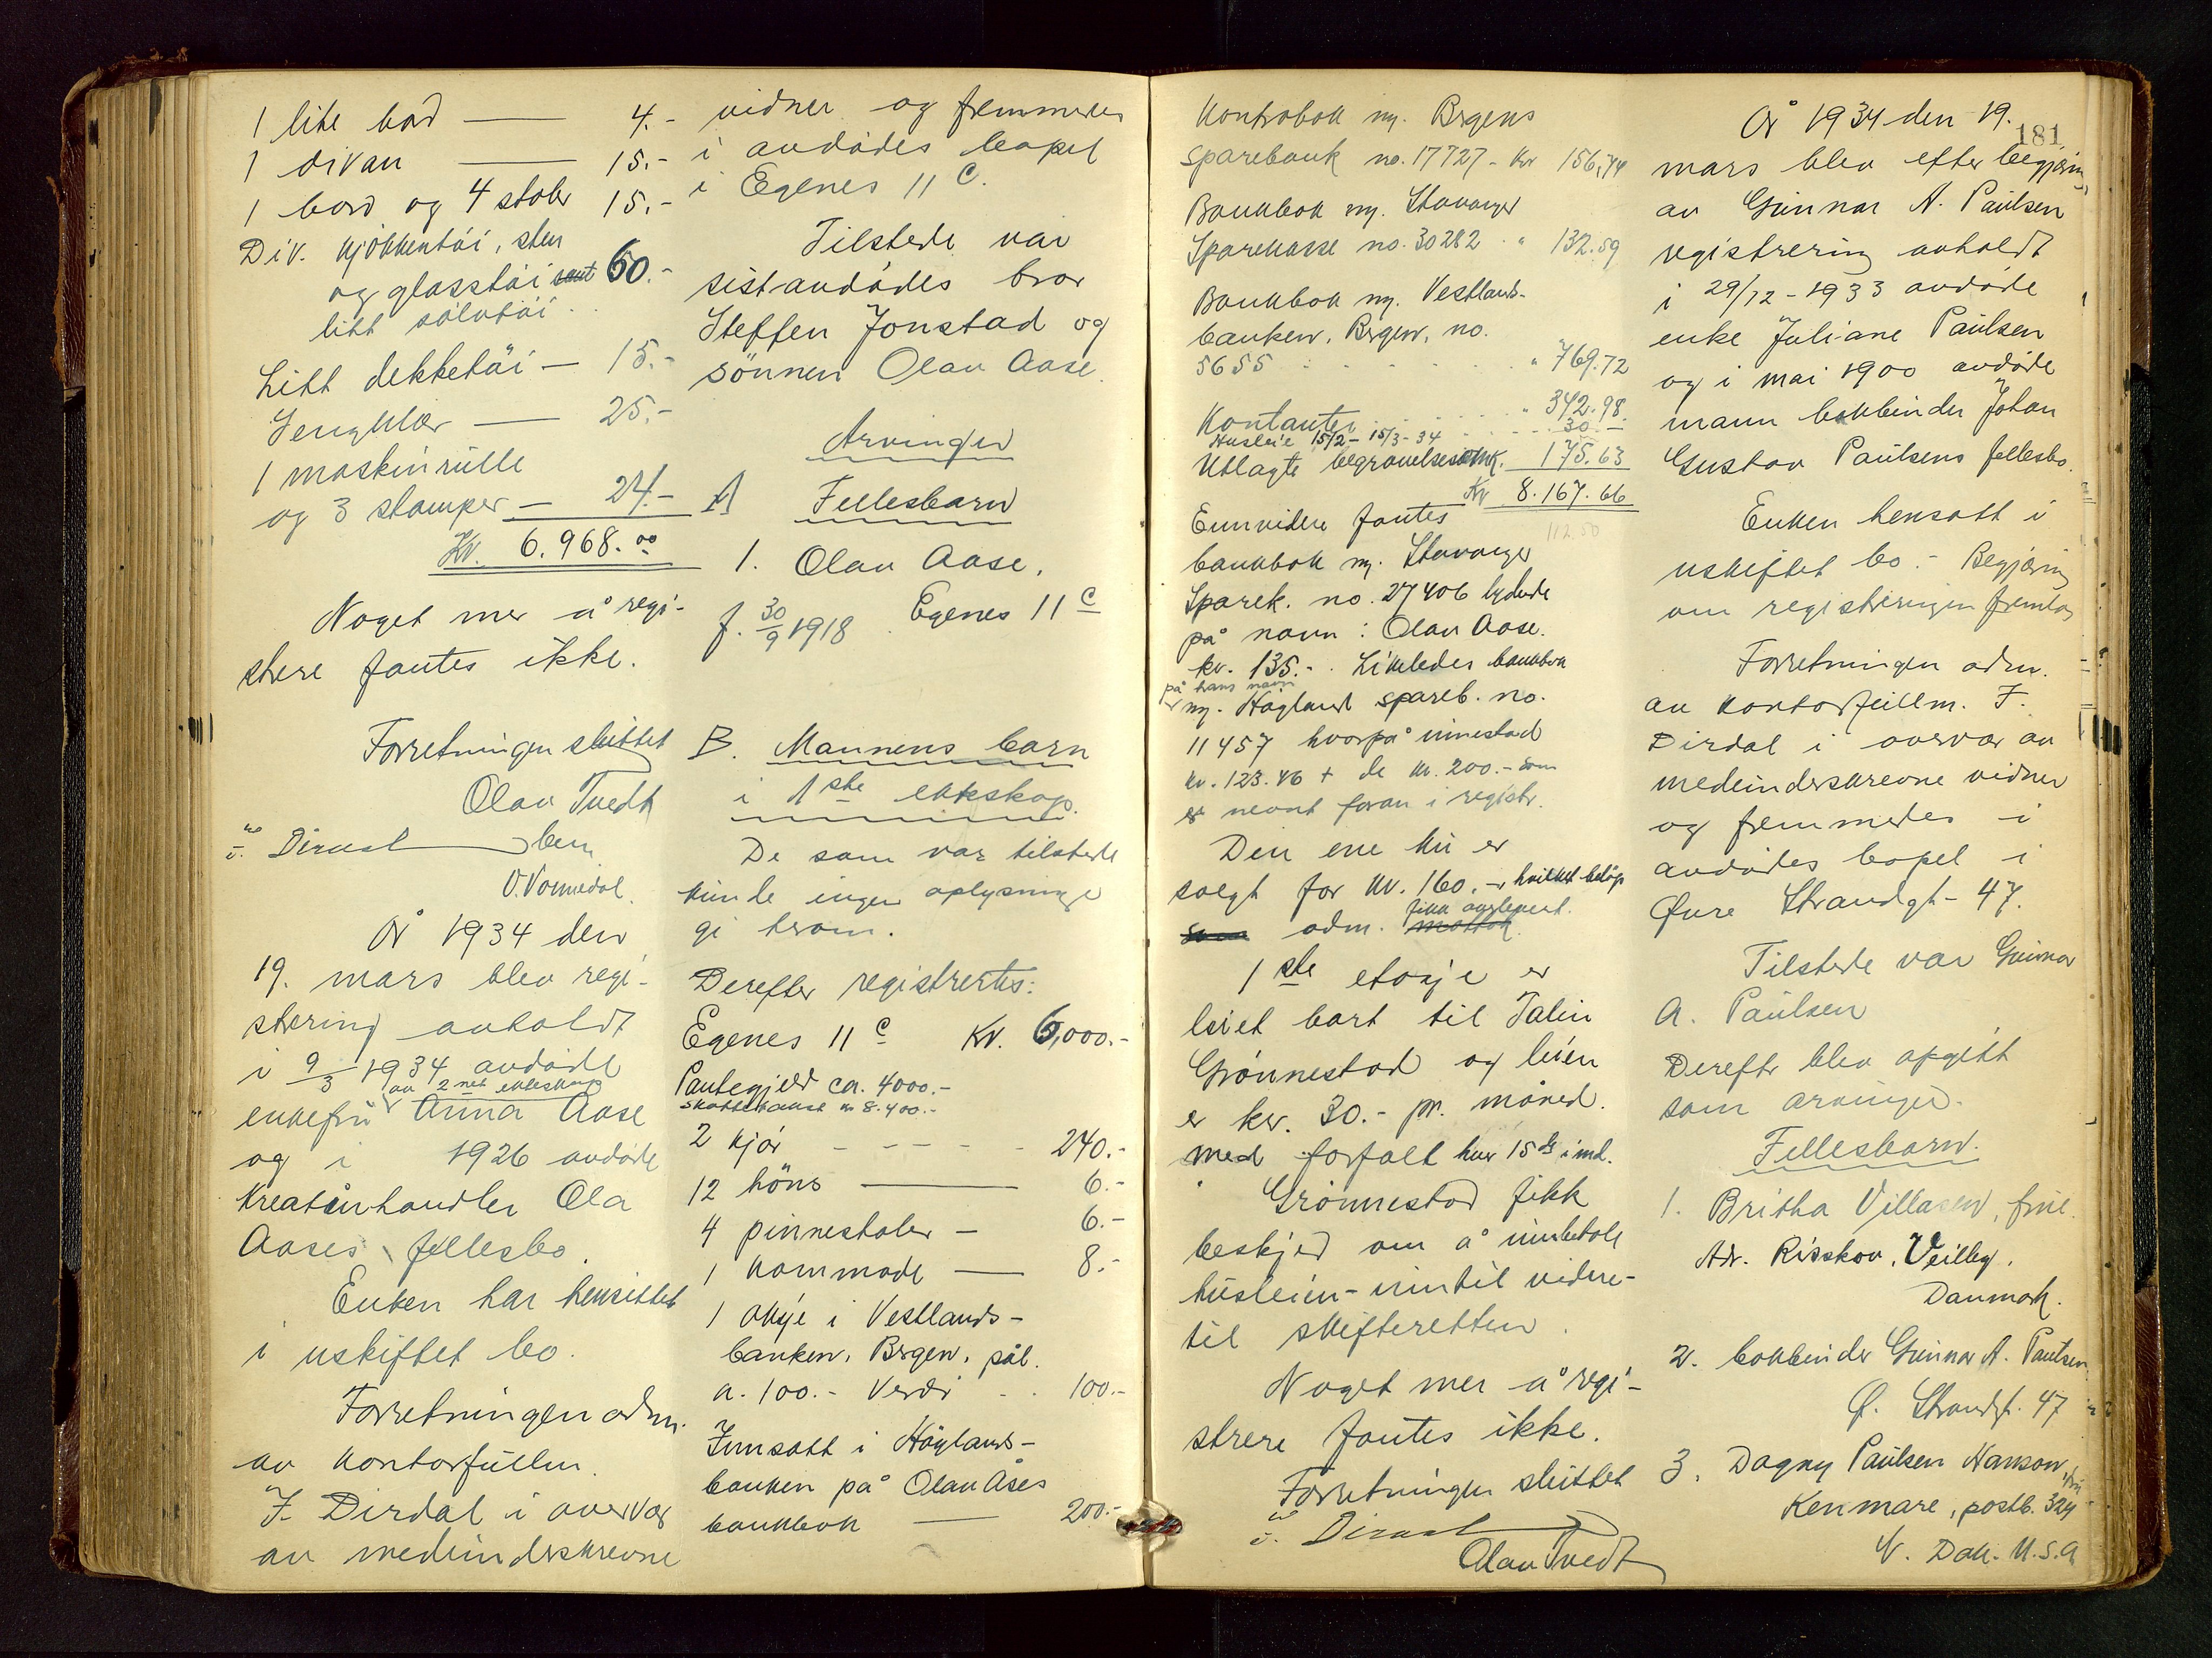 1 lite bord — 4.-
1 divan — 15.-
1 bord og 4 stoler 15.-
Div. kjökkentöi, sten
og glasstöi samt 60.-
litt sölvtöi
Litt dekketöi — 15.-
Sengklær — 25.-
1 maskinrulle
og 3 stamper — 24.-
Kr. 6.968.00
Noget mer å regi-
strere fantes ikke.
Forretningen sluttet
Olav Tvedt
Dirdal
V. Vormedal.
År 1934 den
19. mars blev regi-
strering avholdt
i 9/3 1934 avdöde
av 2net ekteskap
enkefru Anna Aase
og i 1926 avdöde
kreaturhandler Ola
Aases fellesbo.
Enken har hensittet
i uskiftet bo.
Forretningen adm.
av kontorfullm.
F. Dirdal i overvær
av medunderskrevne
vidner og fremmedes
i avdödes bopel
i Egenes 11 c.
Tilstede var
sistavdödes bror
Steffen Jonstad og
sönnen Olav Aase.
Arvinger
A Fellesbarn
1. Olav Aase,
f. 30/9 1918 Egenes 11 c
B. Mannens barn
i 1ste ekteskap.
De som var tilstede
kunde ingen oplysninger
gi herom.
Derefter registrertes:
Egenes 11 c Kr. 6,000.-
Pantegjeld ca. 4000.-
skattetakst kr 8.400.-
2 kjör - - - - 240.-
12 höns — 6.-
4 pinnestoler — 6.-
1 kommode — 8.-
1 aksje i Vestlands-
banken, Bergen, pål.
a. 100.- Verdi - . 100.-
Innsatt i Höylands-
banken på Olav Åses
bankbok — 200.-
Kontrabok m. Bergens
Sparebank no. 17727 - Kr 156,74
Bankbok m. Stavanger
Sparekasse no. 30282 . " 132.59
Bankbok m. Vestlands-
banken, Bergen, no.
5655 . . . . . " 769.72
Kontanter . . . . " 342.98
Husleie 15/2 - 15/3 - 34 . . . 30.-
Utlagte begravelsesomk. 175.63
Kr 8.167.66
112.50
Ennvidere fantes
bankbok m. Stavanger
Sparek. no. 27406 lydende
på navn: Olav Aase.
kr. 135.-. Likeledes bankbok
på hans navn
m. Höyland spareb. no.
11457 hvorpå innestod
kr. 123.46 + de kr. 200.- som
er nevnt foran i registr.
Den ene ku er
solgt for kr. 160.-, hvilket belöp
som adm. mottok
fikk overlevert.
1ste etasje er
leiet bort til Talin
Grönnestad og leien
er kr. 30.- pr. måned.
med forfall hver 15de i md.
Grönnestad fikk
beskjed om å innbetale
husleien - inntil videre -
til skifteretten.
Noget mer å regi-
strere fantes ikke.
Forretningen sluttet
Dirdal
Olav Tvedt
181
År 1934 den 19.
mars blev efter begjæring
av Gunnar A. Paulsen
registrering avholdt
i 29/12 - 1933 avdöde
enke Juliane Paulsen
og i mai 1900 avdöde
mann bokbinder Johan
Gustav Paulsens fellesbo.
Enken hensatt i
uskiftet bo. - Begjæring
om registreringen fremlaa
Forretningen adm.
av kontorfullm. F.
Dirdal i overvær av
medunderskrevne vidner
og fremmedes i
avdödes bopel i
Övre Strandgt - 47.
Tilstede var Gunnar
A. Paulsen
Derefter blev opgitt
som arvinger.
Fellesbarn.
1. Britha Villasen, frue.
Adr. Risskov, Veilby,
Danmark.
2. bokbinder Gunnar A. Paulsen
Ö. Strandgt. 47
3. Dagny Paulsen Hanson, fru
Kenmare, postb. 324
N. Dak. U.S.A